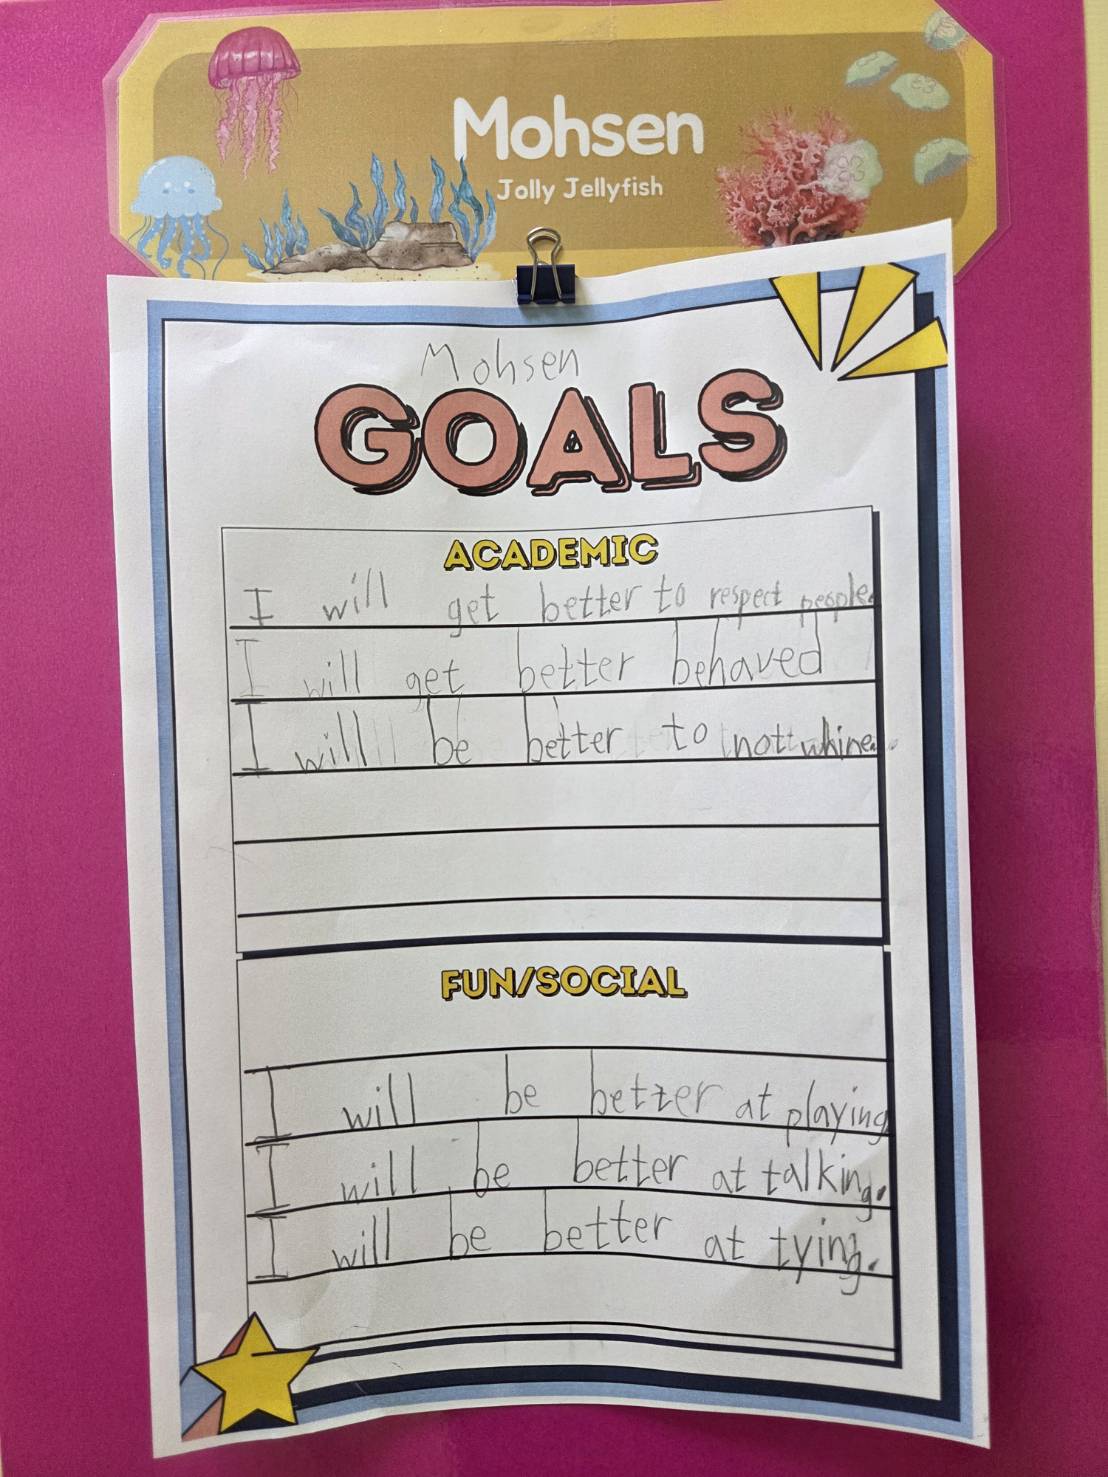 Mohsen
Jolly Jellyfish
Mohsen
GOALS
ACADEMIC
I will get better to respect people.
I will get better behaved
I will be better to not whine.
FUN/SOCIAL
I will be better at playing
I will be better at talking.
I will be better at tying.